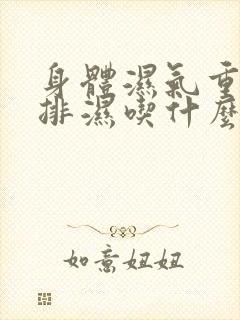 身體濕氣重
排濕喫什麼
如意妞妞